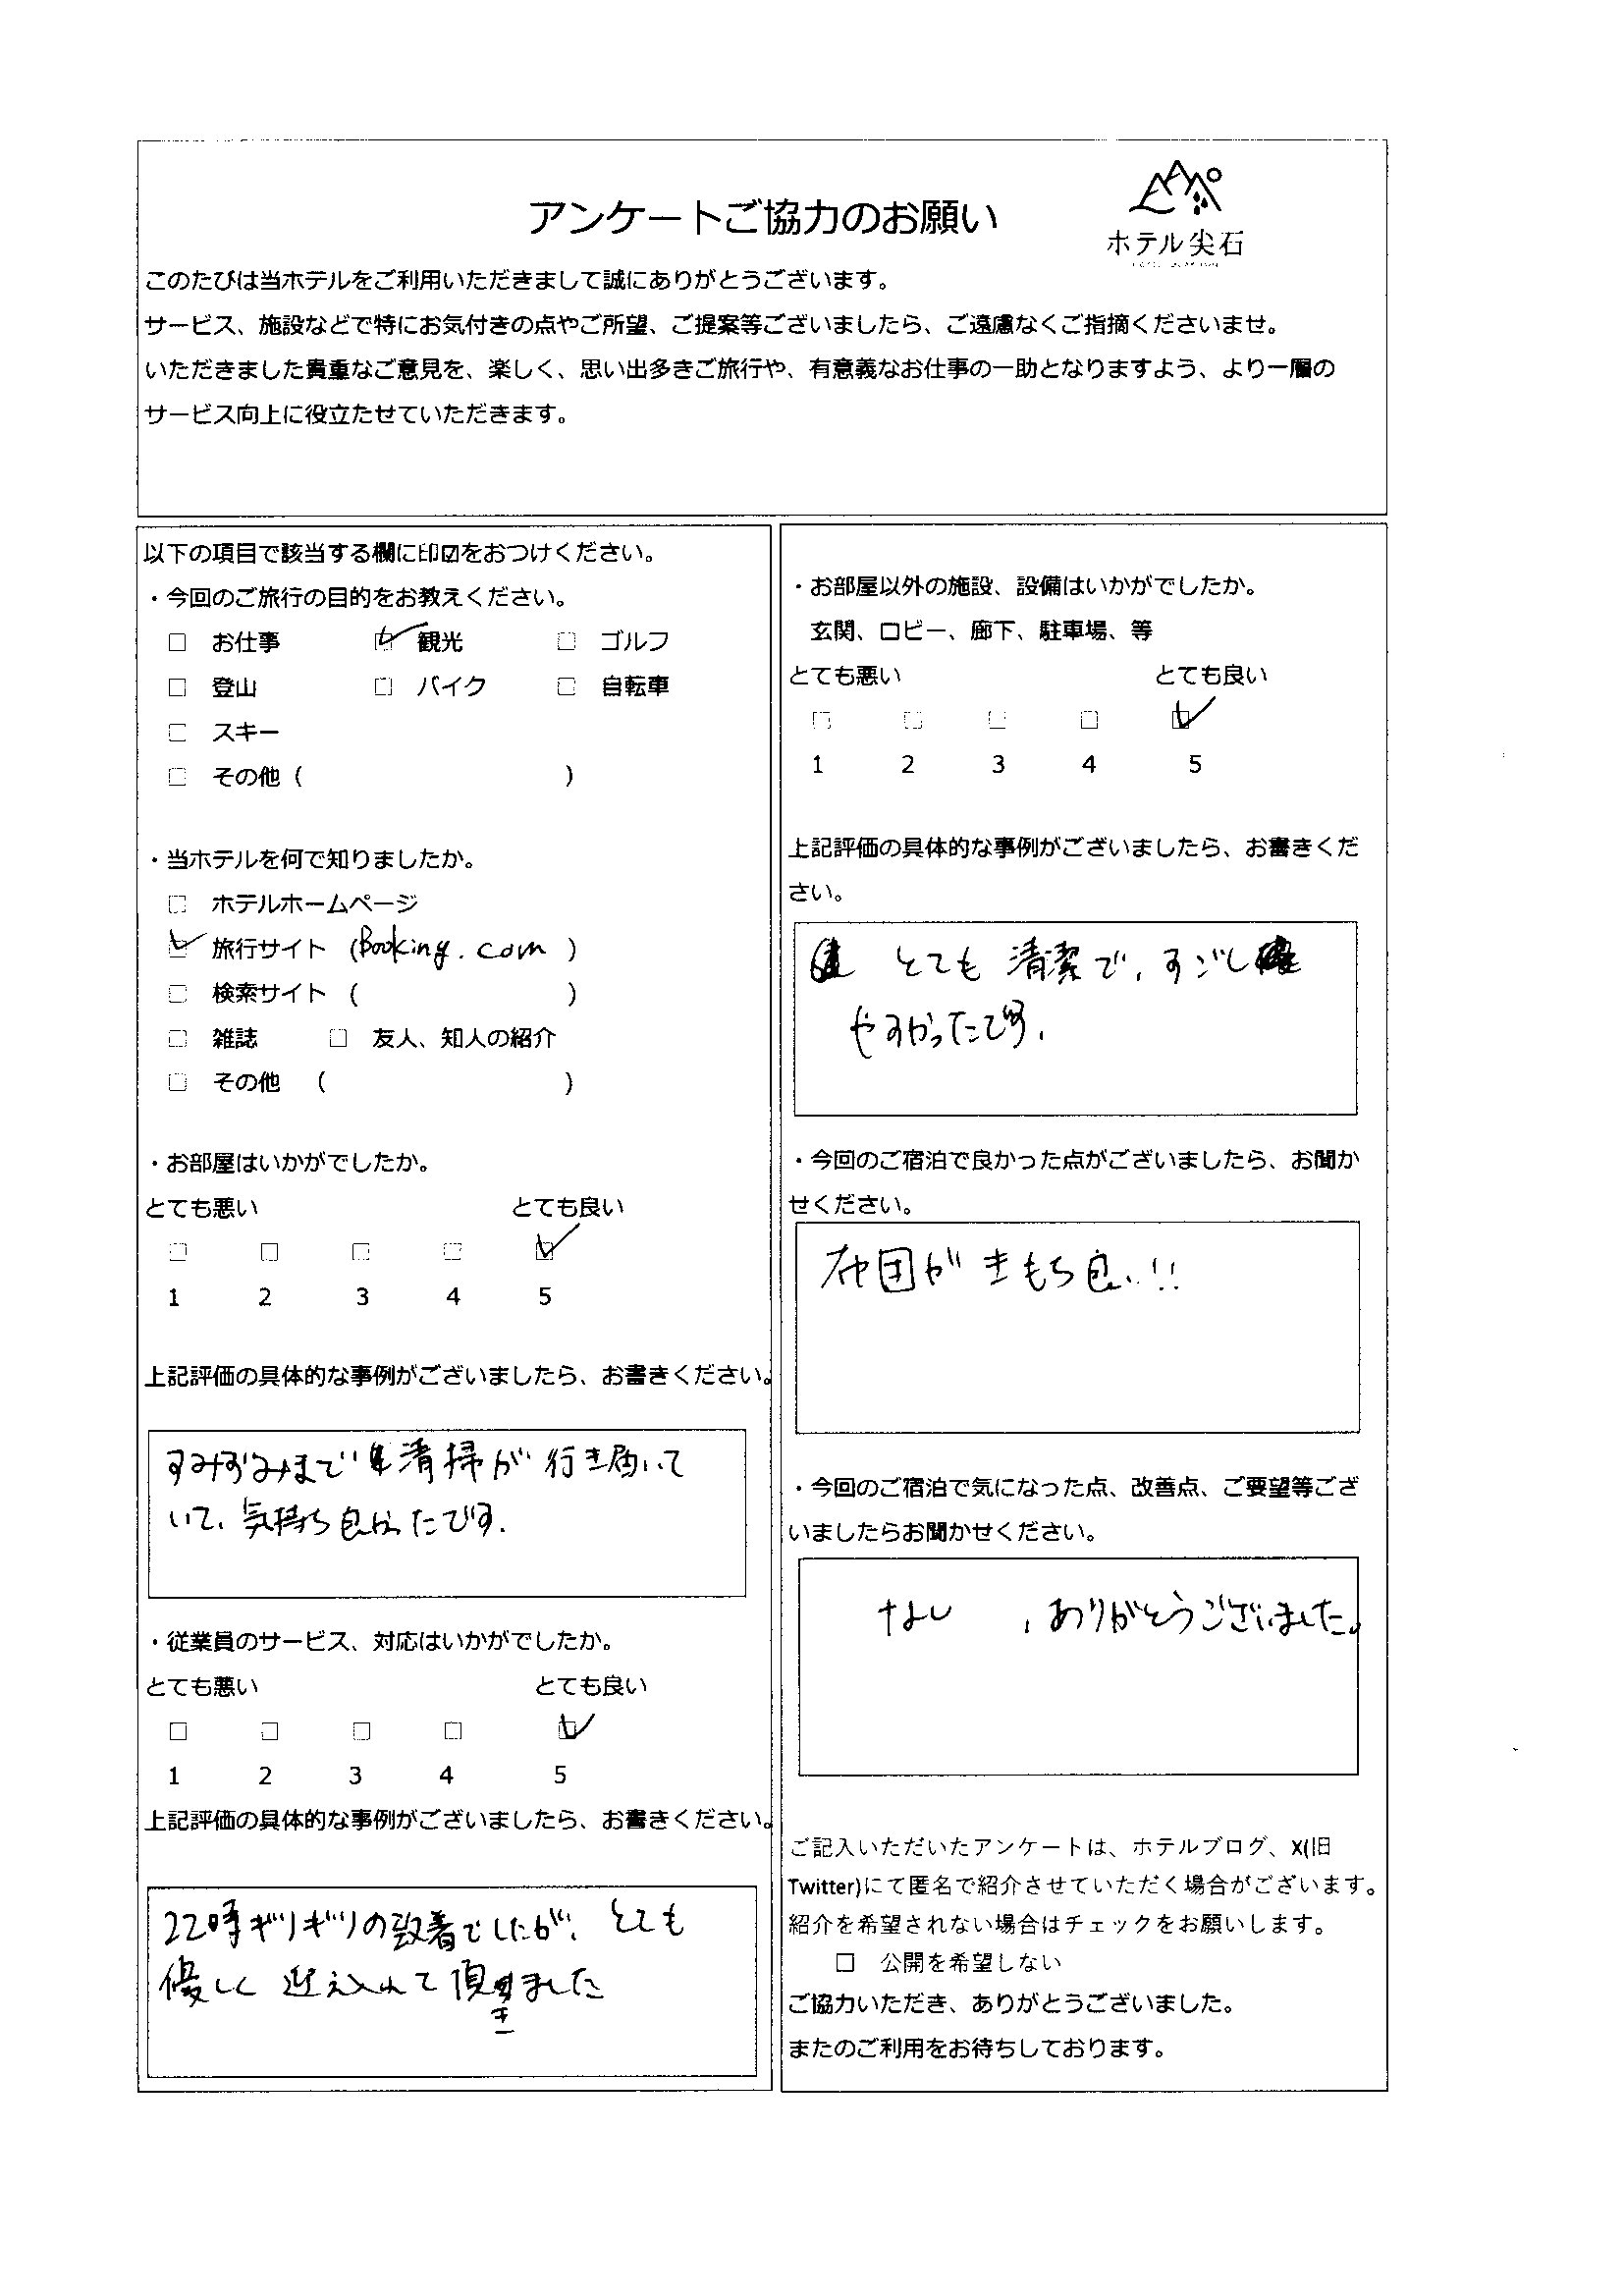 アンケートご協力のお願い
ホテル尖石
このたびは当ホテルをご利用いただきまして誠にありがとうございます。
サービス、施設などで特にお気付きの点やご所望、ご提案等ございましたら、ご遠慮なくご指摘くださいませ。
いただきました貴重なご意見を、楽しく、思い出多きご旅行や、有意義なお仕事の一助となりますよう、より一層の
サービス向上に役立たせていただきます。
以下の項目で該当する欄に印☑をおつけください。
・今回のご旅行の目的をお教えください。
□ お仕事 ☑ 観光 □ ゴルフ
□ 登山 □ バイク □ 自転車
□ スキー
□ その他 ( )
・当ホテルを何で知りましたか。
□ ホテルホームページ
☑ 旅行サイト (Booking.com )
□ 検索サイト ( )
□ 雑誌 □ 友人、知人の紹介
□ その他 ( )
・お部屋はいかがでしたか。
とても悪い とても良い
□ □ □ □ ☑
1 2 3 4 5
上記評価の具体的な事例がございましたら、お書きください。
すみずみまで清掃が行き届いて
いて、気持ち良かったです.
・従業員のサービス、対応はいかがでしたか。
とても悪い とても良い
□ □ □ □ ☑
1 2 3 4 5
上記評価の具体的な事例がございましたら、お書きください。
22時ギリギリの到着でしたが、とても
優しく迎え入れて頂きました
・お部屋以外の施設、設備はいかがでしたか。
玄関、ロビー、廊下、駐車場、等
とても悪い とても良い
□ □ □ □ ☑
1 2 3 4 5
上記評価の具体的な事例がございましたら、お書きくだ
さい。
とても清潔で、すごし
やすかったです.
・今回のご宿泊で良かった点がございましたら、お聞か
せください。
布団がきもち良い!!
・今回のご宿泊で気になった点、改善点、ご要望等ござ
いましたらお聞かせください。
なし 、ありがとうございました。
ご記入いただいたアンケートは、ホテルブログ、X(旧
Twitter)にて匿名で紹介させていただく場合がございます。
紹介を希望されない場合はチェックをお願いします。
□ 公開を希望しない
ご協力いただき、ありがとうございました。
またのご利用をお待ちしております。